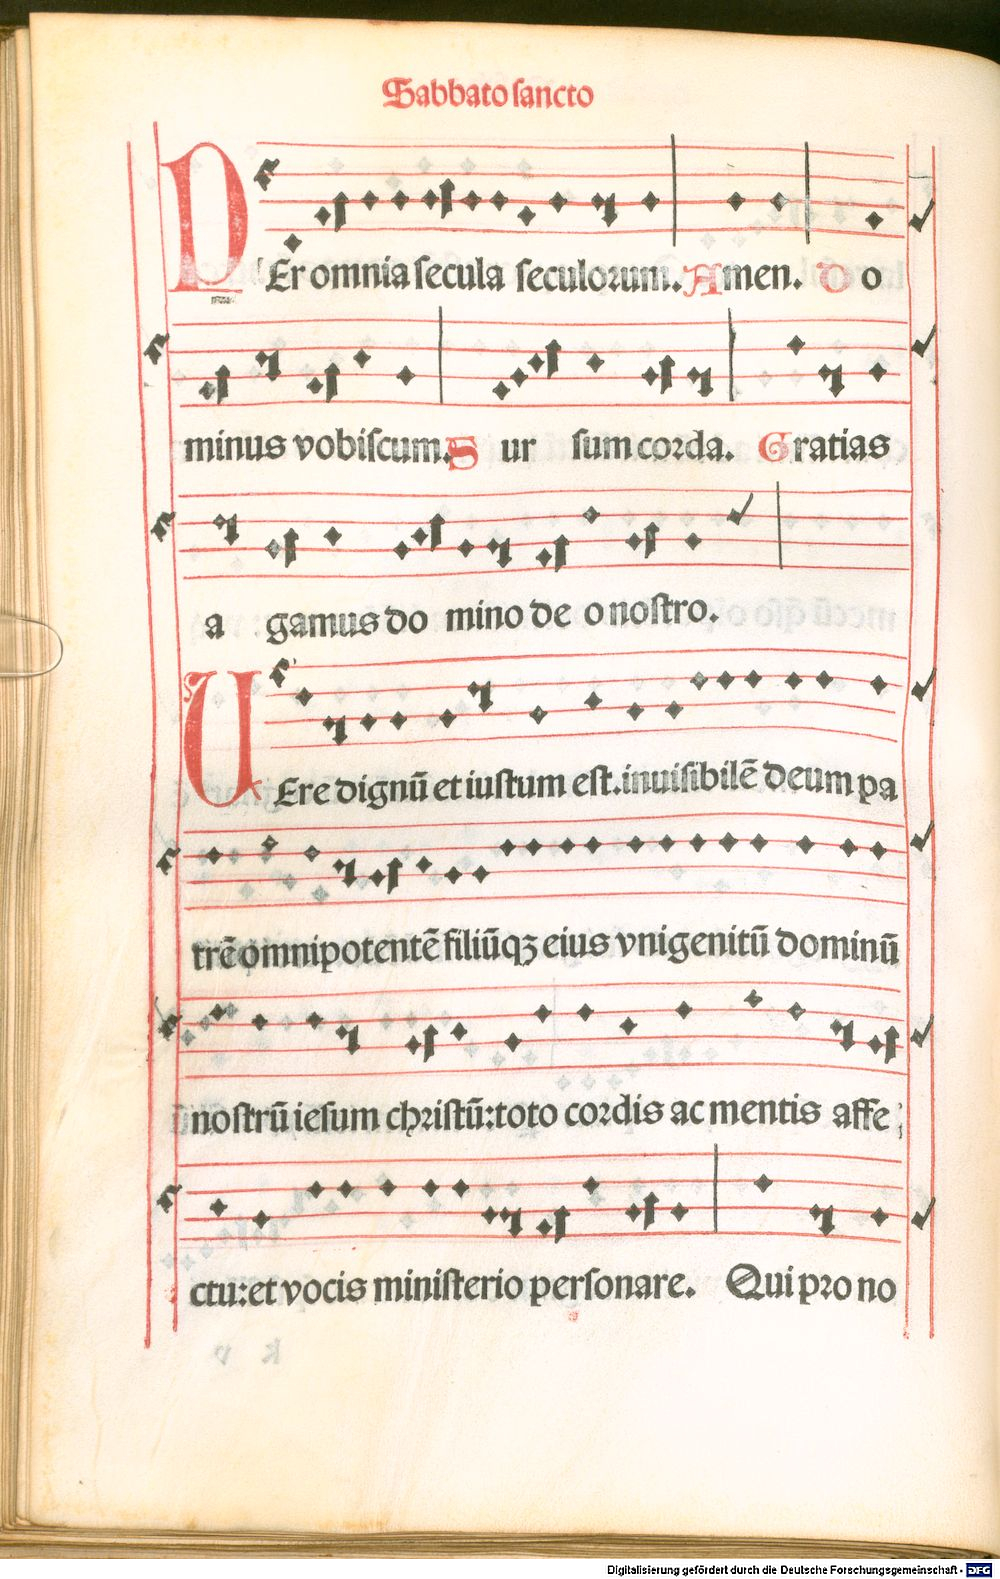 Sabbato sancto
PEr omnia secula seculorum. Amen. Do
minus vobiscum. Sur sum corda. Gratias
a gamus do mino de o nostro.
VEre dignū et iustum est. inuisibilē deum pa
trē omnipotentē filiūqꝫ eius vnigenitū dominū
nostrū iesum christū: toto cordis ac mentis affe
ctu: et vocis ministerio personare. Qui pro no
Digitalisierung gefördert durch die Deutsche Forschungsgemeinschaft - DFG